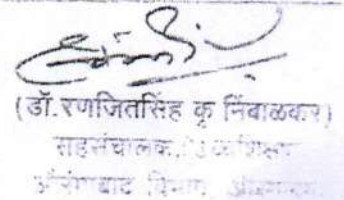 (डॉ.रणजितसिंह कृ निंबाळकर)
सहसंचालक, उच्च शिक्षण
औरंगाबाद विभाग, औरंगाबाद.